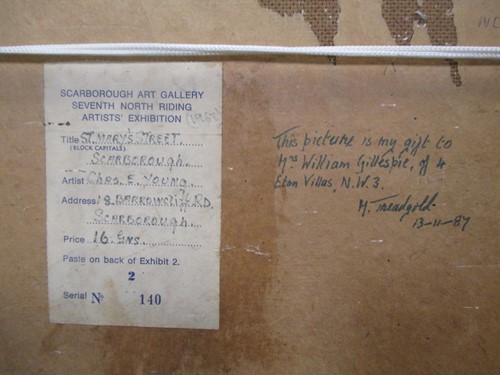 SCARBOROUGH ART GALLERY
SEVENTH NORTH RIDING
ARTISTS' EXHIBITION
Title ST. MARY'S STREET
(BLOCK CAPITALS)
SCARBOROUGH.
Artist CHAS. E. YOUNG.
Address 18 BARROWCLIFF RD
SCARBOROUGH.
Price 16. GNS.
Paste on back of Exhibit 2.
2
Serial No 140
This picture is my gift to
Mrs William Gillespie, of 4
Eton Villas, N.W.3.
M.
13-11-87